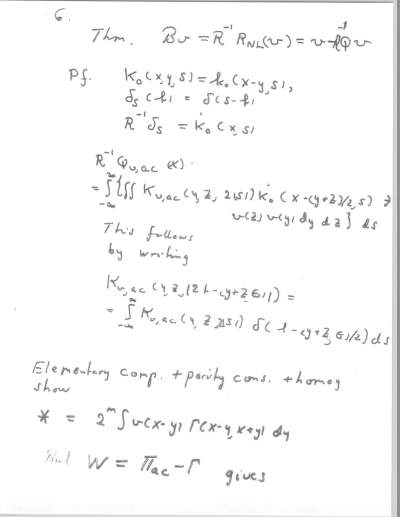 6.
Thm. Bv = R⁻¹ R_NL(v) = v - R⁻¹Q v
Pf. K₀(x,y,s) = k₀(x-y,s),
δ_s(t) = δ(s-t)
R⁻¹δ_s = k̇₀(x,s)
R⁻¹ Q_v,ac (x)
= ∫_{-∞}^{∞} {∬ K_v,ac (y, z, 2|s|) k̇₀ (x-(y+z)/2, s)
v(z) v(y) dy dz } ds
This follows
by writing
K_v,ac (y, z, |2t-(y+z,θ)|) =
= ∫_{-∞}^{∞} K_v,ac (y, z, 2|s|) δ(t-(y+z,θ)/2) ds
Elementary comp. + parity cons. + homog
show
* = 2ᵐ ∫ v(x-y) Γ(x-y, x+y) dy
W = Π_ac - Γ gives